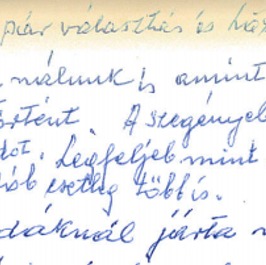 pár választás és
nálunk is amint
történt A szegényeb
dot. Legfeljeb mint
öb esetleg több is.
dáknál járta